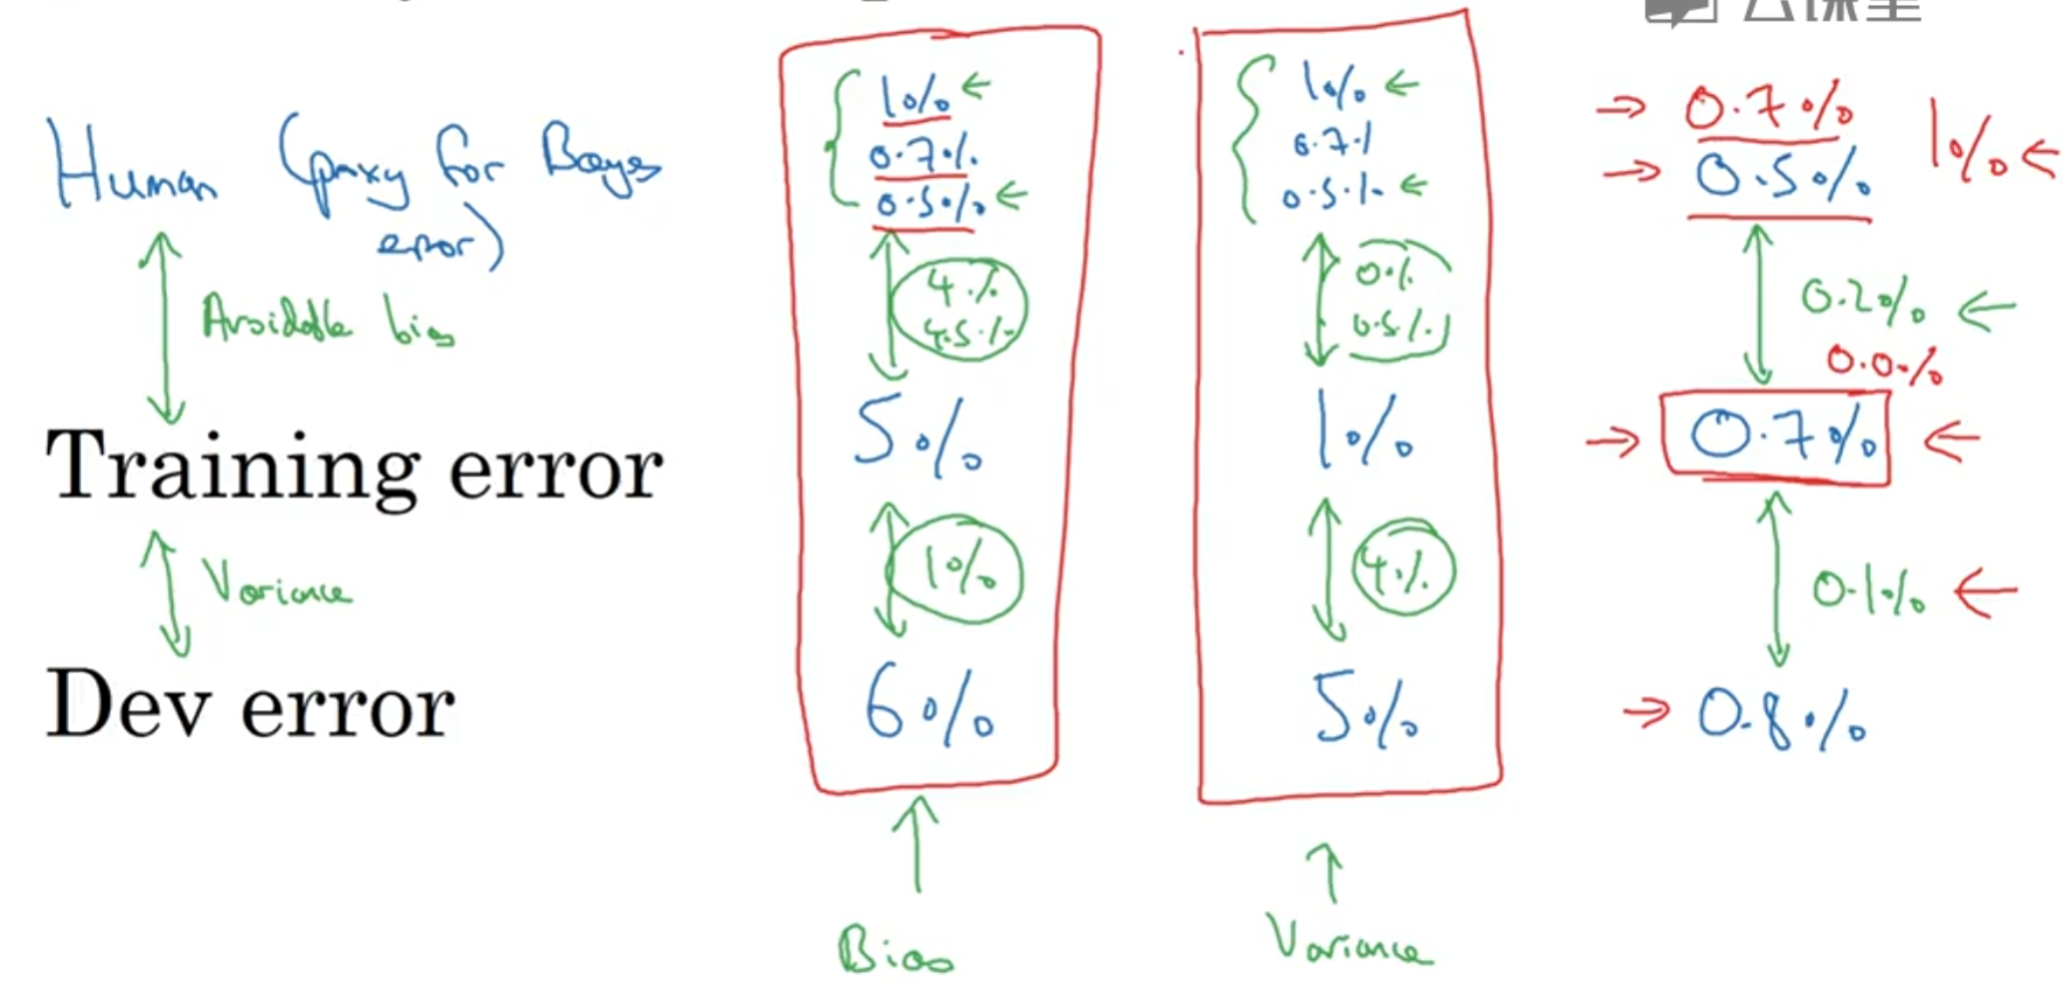 云课堂
Human (proxy for Bayes
error)
Avoidable bias
Training error
Variance
Dev error
1%
0.7%
0.5%
4%
4.5%
5%
1%
6%
Bias
1%
0.7%
0.5%
0%
0.5%
1%
4%
5%
Variance
0.7%
0.5%
1%
0.2%
0.0%
0.7%
0.1%
0.8%